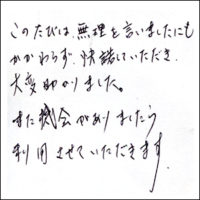 このたびは、無理を言いましたにも
かかわらず、快諾していただき、
大変助かりました。
また機会がありましたら
利用させていただきます。